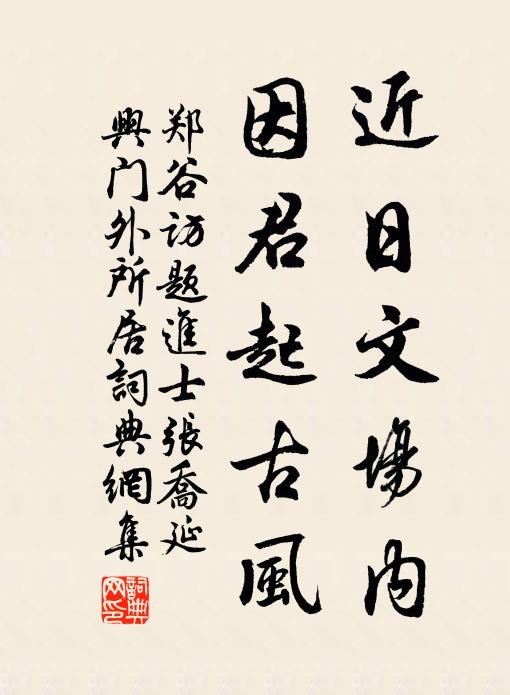 近日文場内
因君起古風
郑谷访题進士張喬延
興门外所居詞典網集
詞典网印